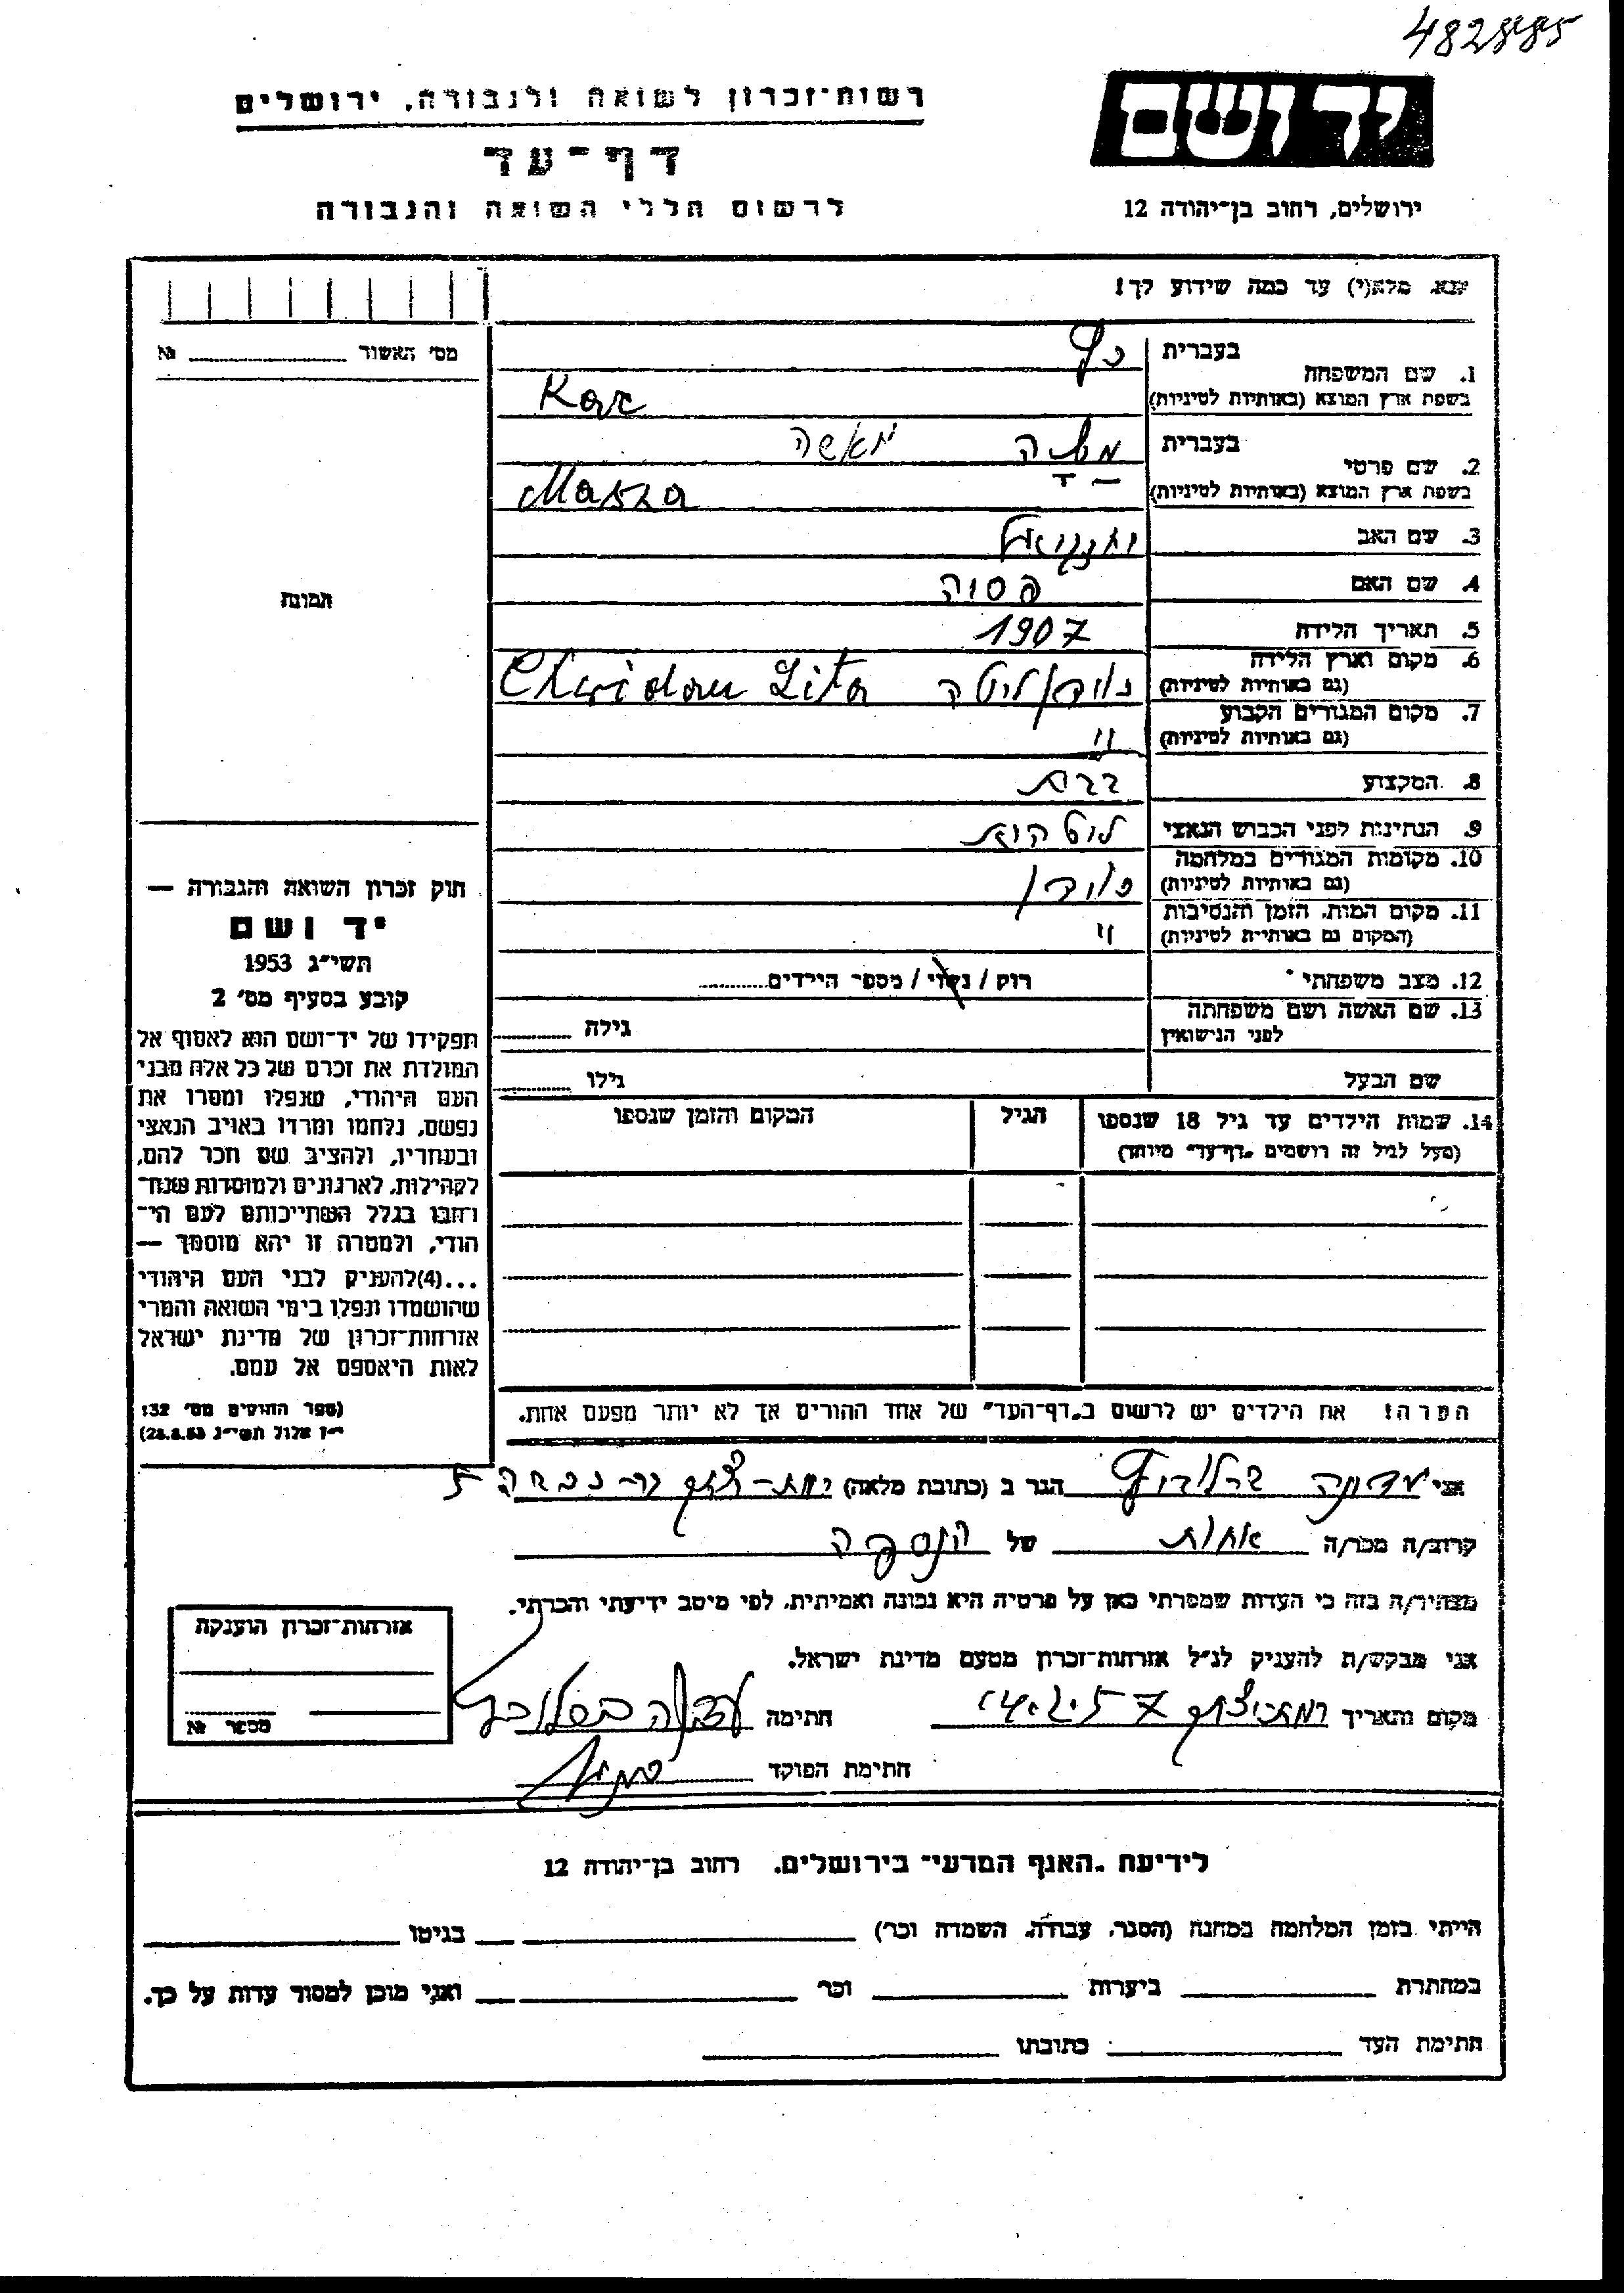 482885
רשות־זכרון לשואה ולגבורה, ירושלים
יד ושם
דף־עד
לרשום חללי השואה והגבורה
ירושלים, רחוב בן־יהודה 12
נא מלא(י) עד כמה שידוע לך!
מס׳ האשור № 
1. שם המשפחה
בעברית
בשפת ארץ המוצא (באותיות לטיניות)
2. שם פרטי
בעברית מאשה
בשפת ארץ המוצא (באותיות לטיניות) Masza
3. שם האב
4. שם האם פסיה
5. תאריך הלידה 1907
6. מקום וארץ הלידה
(גם באותיות לטיניות) Lita
7. מקום המגורים הקבוע
(גם באותיות לטיניות) "
8. המקצוע
9. הנתינות לפני הכבוש הנאצי
10. מקומות המגורים במלחמה
(גם באותיות לטיניות)
11. מקום המות, הזמן והנסיבות
(המקום גם באותיות לטיניות) "
12. מצב משפחתי רוק / נשוי / מספר הילדים
13. שם האשה ושם משפחתה
לפני הנישואין גילה
שם הבעל גילו
14. שמות הילדים עד גיל 18 שנספו
(מעל לגיל זה רושמים „דף־עד״ מיוחד)
הגיל
המקום והזמן שנספו
תמונה
חוק זכרון השואה והגבורה —
יד ושם
תשי״ג 1953
קובע בסעיף מס׳ 2
תפקידו של יד־ושם הוא לאסוף אל
המולדת את זכרם של כל אלה מבני
העם היהודי, שנפלו ומסרו את
נפשם, נלחמו ומרדו באויב הנאצי
ובעוזריו, ולהציב שם וזכר להם,
לקהילות, לארגונים ולמוסדות שנח־
רחבו בגלל השתייכותם לעם הי־
הודי, ולמטרה זו יהא מוסמך —
...(4)להעניק לבני העם היהודי
שהושמדו ונפלו בימי השואה והמרי
אזרחות־זכרון של מדינת ישראל
לאות היאספם אל עמם.
(ספר החוקים מס׳ 132
י״ז אלול תשי״ג 28.8.53)
הערה! את הילדים יש לרשום ב„דף־העד״ של אחד ההורים אך לא יותר מפעם אחת.
אני הגר ב (כתובת מלאה) 5
קרוב/ה מכר/ה אחות של הנספה
מצהיר/ה בזה כי העדות שמסרתי כאן על פרטיה היא נכונה ואמיתית, לפי מיטב ידיעתי והכרתי.
אני מבקש/ת להעניק לנ״ל אזרחות־זכרון מטעם מדינת ישראל.
מקום ותאריך חתימה
חתימת הפוקד
אזרחות־זכרון הוענקה
מספר №
לידיעת „האגף המדעי״ בירושלים, רחוב בן־יהודה 12
הייתי בזמן המלחמה במחנה (הסגר, עבודה, השמדה וכו׳) בגיטו
במחתרת ביערות וכו׳ ואני מוכן למסור עדות על כך.
חתימת העד כתובתו